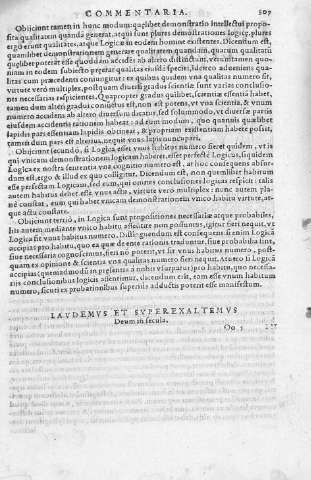 COMMENTARIA.
Obijciunt tamen in hunc modum: quęlibet demonstratio intellectui propo
sita qualitatem quandā generat, atqui sunt plures demōstrationes logicę, plures
ergo erunt qualitates, atque Logicæ in eodem homine existentes. Dicendum est,
quamlibet demonstrationem generare qualitatem quamdam, quarum qualitatum
quęlibet poterat esse quoddam accidēs ab altero
niam in eodem subiecto pręerat qualitas eiusdē speciei, ideo adueniens qua-
litas cum præcedenti coniungitur: ex quibus quidem vna qualitas numero fit,
virtute verò multiplex, postquam diuersi gradus scientiæ sunt varias conclusio-
nes necessarias respicientes. Quapropter gradus quilibet, scientiæ essentiā habet,
tamen dum alteri gradui coniunctus est, non est potens, vt vna scientia, & vnum
numero accidens ab altero diuersum dicatur, sed solummodo, vt diuersæ partis
eiusdem accidentis rationem habeat: ad eum modum, quo quamuis quælibet
lapidis pars essentiam lapidis obtineat, & propriam existentiam habere possit,
tamen dum pars est alterius, nequit vnus lapis nuncupari.
Obijciunt secundò, si Logica esset vnus habitus numero sieret quidem, vt is
qui vnicam demonstrationem logicam haberet, esset perfectè Logicus, siquidem
Logica ex nostra sententia vna cognitio numero est, at hoc consequens absur-
dum est, ergo & illud ex quo colligitur. Dicendum est, non quemlibet habitum
esse perfectam Logicam, sed eum, qui omnes conclusiones logicas respicit: talis
autem habitus debet esse vnus actu, virtute verò multiplex: nunc autem pla-
nè constat, eum qui habet vnicam demonstrationem vnico habitu virtute, at-
que actu constare.
Obijciunt tertiò, in Logica sunt propositiones necessariæ atque probabiles,
his autem mediante vnico habitu assentire non possumus, igitur fieri nequit, vt
Logica sit vnus habitus numero. Distinguendum est consequens si enim Logicā
occupas pro habitu, quo ea quæ de ente rationis traduntur, siue probabilia sint,
siue necessaria cognoscimus, fieri nō poterit, vt sit vnus habitus numero, post-
quam ex opinione & scientia vna qualitas numero fieri nequit. At verò si Logicā
occupias quemadmodū in pręsentia à nobis vsurpatur: pro habitu, quo necessa-
rijs conclusionibus logicis assentimur, dicendum est, eam esse vnum habitum
numero, sicuti ex probationibus superiùs adductis poterit esse manifestum.
LAVDEMVS ET SVPEREXALTEMVS
Deum in sæcula.
Oo